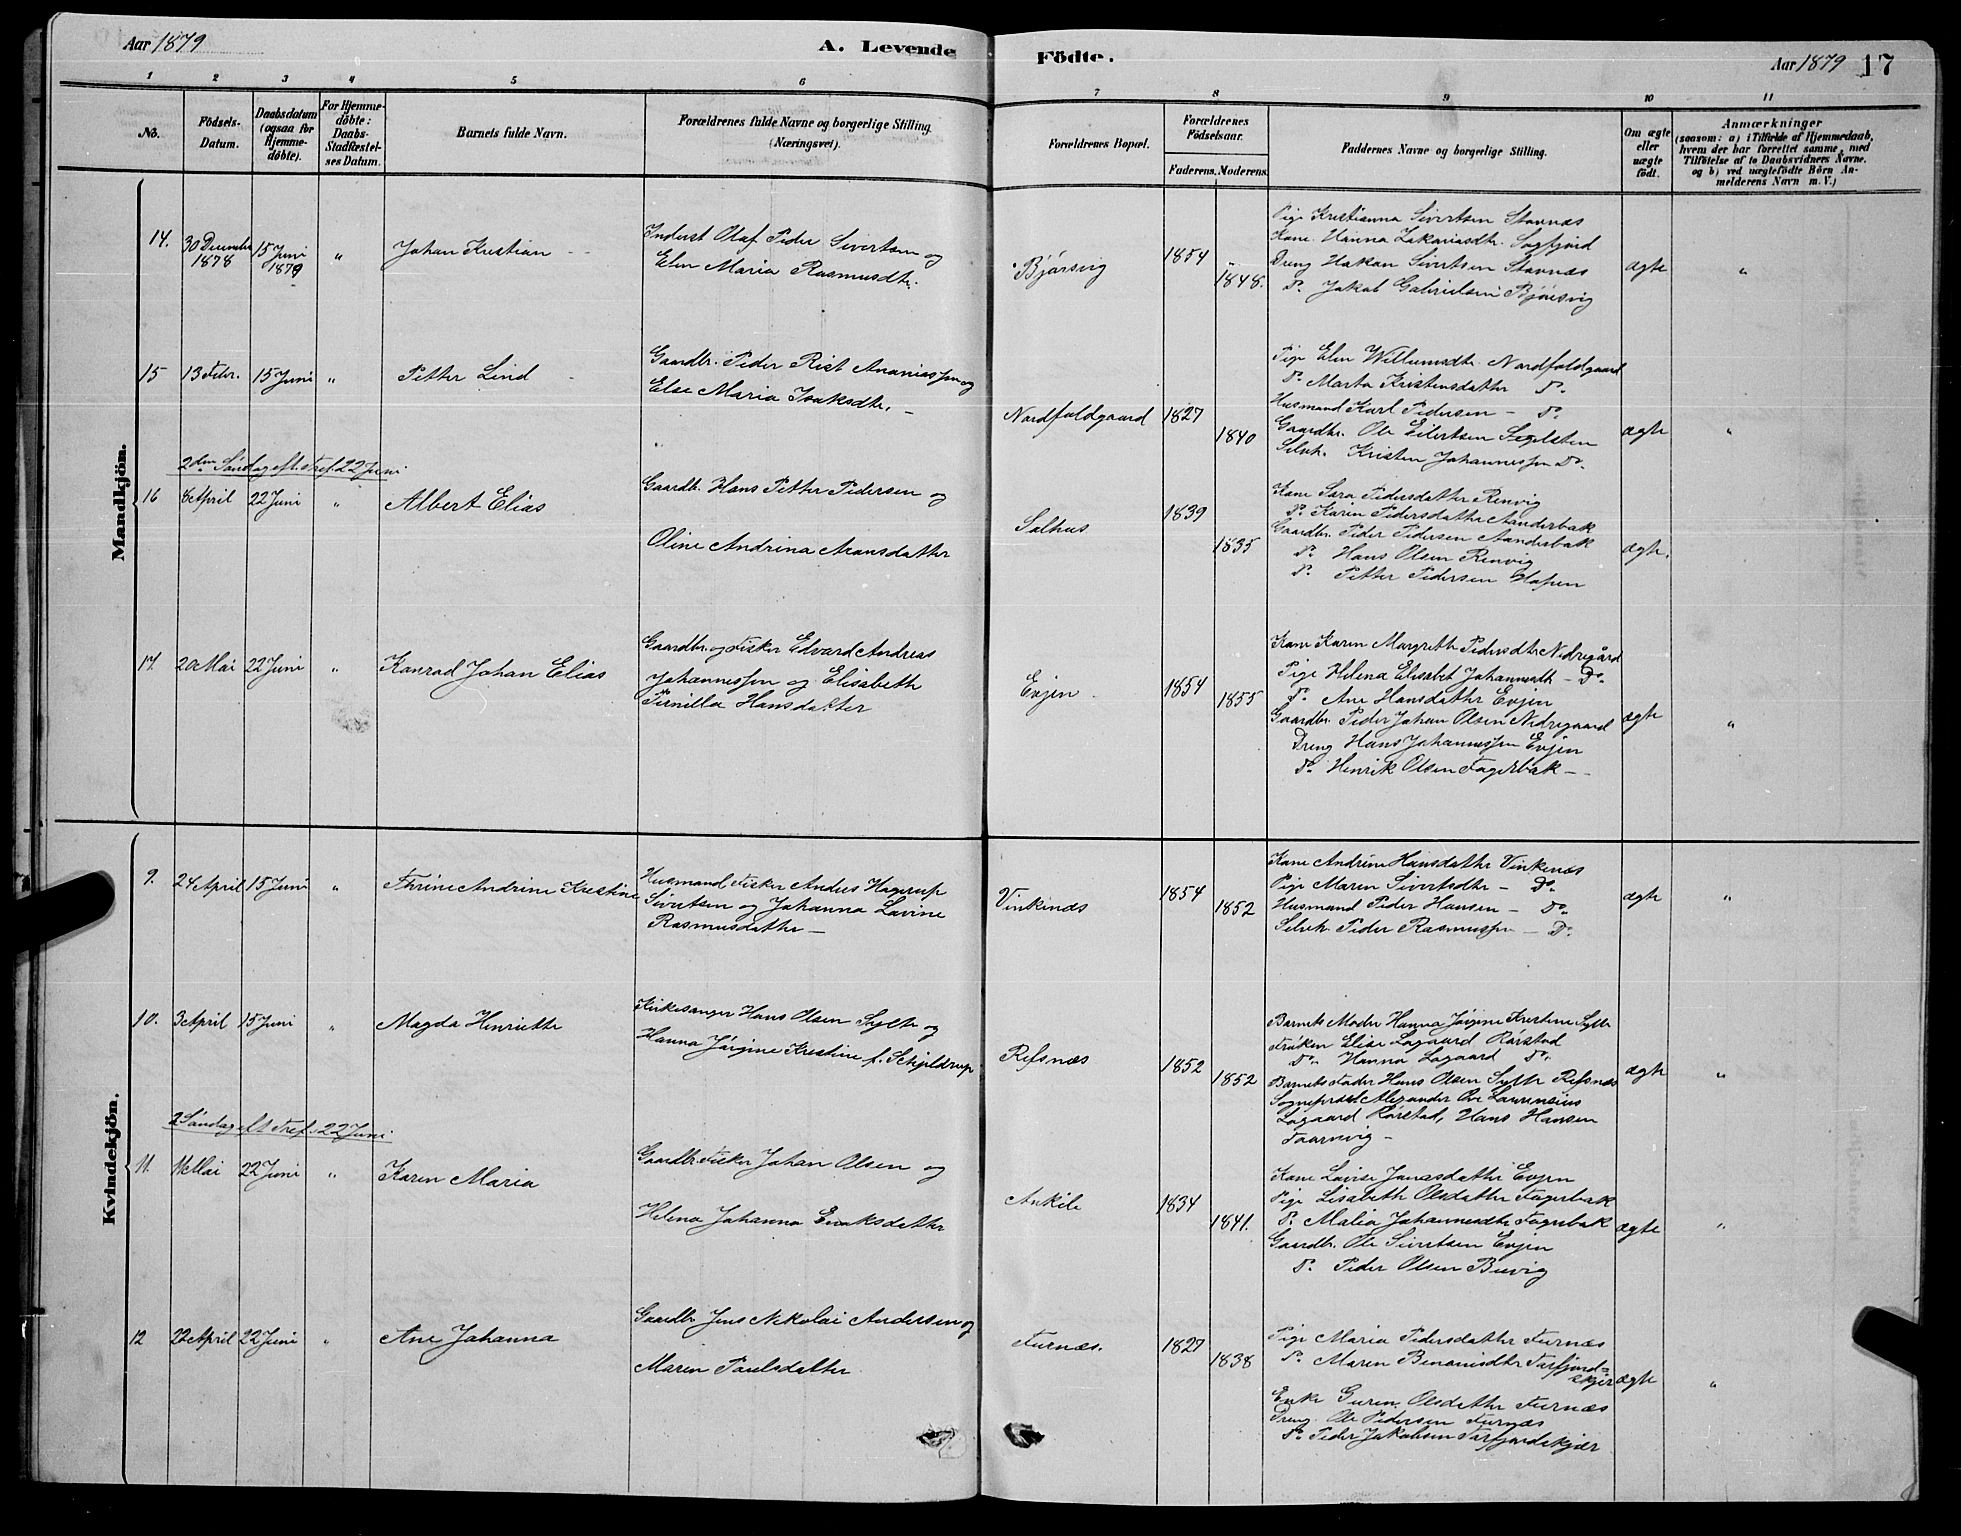 Aar 1879
A. Levende
Födte.
Aar 1879
17
1 2 3 4 5 6 7 8 9 10 11
No.
Födsels-
Datum.
Daabsdatum
(ogsaa for
Hjemme-
döbte).
For Hjemme-
döbte:
Daabs-
Stadfæstel-
ses Datum.
Barnets fulde Navn.
Forældrenes fulde Navne og borgerlige Stilling.
(Næringsvei).
Forældrenes Bopæl.
Forældrenes
Födselsaar.
Faderens. Moderens.
Faddernes Navne og borgerlige Stilling.
Om ægte
eller
uægte
födt.
Anmærkninger
(saasom: a) i Tilfælde af Hjemmedaab,
hvem der har forrettet samme, med
Tilföielse af to Daabsvidners Navne.
og b) ved uægtefödte Börn An-
melderens Navn m. V.)
Mandkjön.
14.
30 December
1878
15 Juni
1879
"
Johan Kristian
Inderst Olaf Peder Sivertsen og
Elen Maria Rasmusdtr.
Bjørsvig
1854
1848.
Pige Kristianna Sivertsen Stavnæs
Kone Hanna Zakariasdtr. Sagfjord
Dreng Hakan Sivertsen Stavnæs
Do. Jakob Gabrielsen Bjørsvig
ægte
"
15
13 Febr.
15 Juni
"
Petter Lind
Gaardbr. Peder Rist Ananiassen og
Else Maria Isaksdtr.
Nordfoldgaard
1827
1840
Pige Elen Willumsdtr. Nordfoldgaard
Do. Marta Kristensdatter Do.
Husmand Karl Pedersen - Do.
Gaardbr. Ole Eilertsen Segelsten
Selvh. Kristen Johannessen Do.
ægte
"
2den Søndag eft. Tref. 22 Juni
16
8 April
22 Juni
"
Albert Elias
Gaardb. Hans Petter Pedersen og
Oline Andrina Aronsdatter
Salhus
1839
1835
Kone Sara Pedersdatter Renvig
Do. Karen Pedersdatter Aanderbak
Gaardbr. Peder Pedersen Aanderbak
Do. Hans Olsen Renvig
Do. Petter Pedersen
ægte.
17.
20 Mai
22 Juni
"
Konrad Johan Elias
Gaardbr. og Fisker Edvard Andreas
Johannessen og Elisabeth
Pernilla Hansdatter
Evjen
1854
1855
Kone Karen Margrethe Pedersdtr Nedregård
Pige Helena Elisabet Johannesdtr - Do.
Do. Ane Hansdatter Evjen
Gaardbr. Peder Johan Olsen Nedregaard
Dreng Hans Johannessen Evjen
Do. Henrik Olsen Fagerbak
ægte
"
Kvindekjön.
9.
24 April
15 Juni
"
Thrine Andrine Kristine
Husmand Fisker Anders Hagerup
Sivertsen og Johanna Lavine
Rasmusdatter
Vinkenæs
1854
1852
Kone Andrine Hansdatter Vinkenæs
Pige Maren Sivertsdtr - Do.
Husmand Peder Hansen - Do.
Selvh. Peder Rasmussen - Do.
ægte
"
10.
3 April
15 Juni
"
Magda Henriette
Kirkesanger Hans Olsen Sylte og
Hanna Jørgine Kristine f. Schjeldrup
Refsnæs
1852
1852
Barnets Moder Hanna Jørgine Kristine Sylte
Frøken Elise Lagaard Rørstad
Do. Hanna Lagaard Do.
Barnets Fader Hans Olsen Sylte Refsnæs
Sogneprest Alexander Ove Laurensius
Lagaard Rørstad, Hans Hansen
Faarevig
ægte
"
2 Søndag eft Tref. 22 Juni
11.
Mai
22 Juni
"
Karen Maria
Gaardb. Fisker Johan Olsen og
Helena Johanna Enoksdatter
Ankile
1834
1841.
Kone Lovise Jonasdatter Evjen
Pige Lisabeth Olsdatter Fagerbak
Do. Malia Johannesdtr Fagerbak
Gaardbr. Ole Sivertsen Evjen
Do. Peder Olsen
ægte
"
12
22 April
22 Juni
"
Ane Johanna
Gaardbr Jens Nikolai Andersen og
Maren Paulsdatter
Furnæs.
1827
1838
Pige Maria Pedersdatter Furnæs
Do. Maren Benonisdtr Torfjord-
skjær
Enke Guren Olsdatter Furnæs
Dreng Ole Pedersen Furnæs
Do. Peder Jakobsen Torfjordskjær
ægte
"